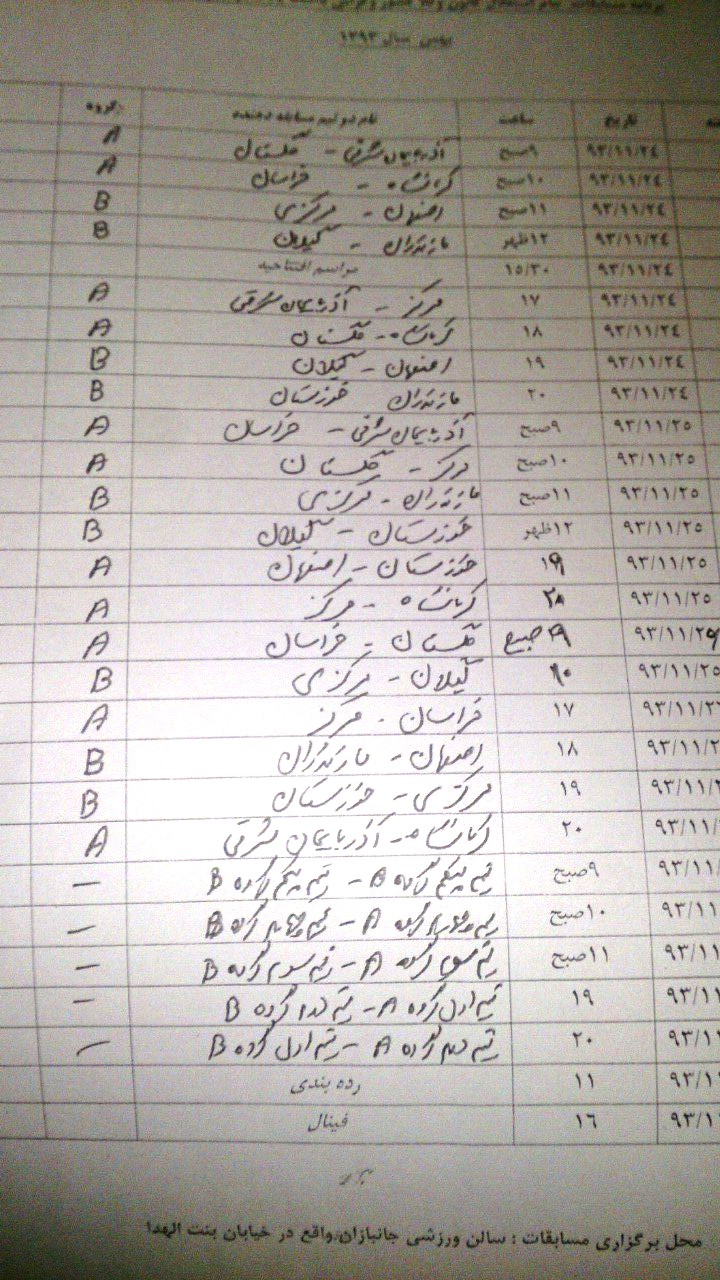 بهمن سال ۱۳۹۳
تاریخ ساعت نام دو تیم مسابقه دهنده گروه
۹۳/۱۱/۲۴ ۹صبح آذربایجان شرقی - گلستان A
۹۳/۱۱/۲۴ ۱۰صبح کرمانشاه - خراسان A
۹۳/۱۱/۲۴ ۱۱صبح اصفهان - مرکزی B
۹۳/۱۱/۲۴ ۱۲ظهر مازندران - گیلان B
۹۳/۱۱/۲۴ ۱۵/۳۰ مراسم افتتاحیه
۹۳/۱۱/۲۴ ۱۷ مرکز - آذربایجان شرقی A
۹۳/۱۱/۲۴ ۱۸ کرمانشاه - گلستان A
۹۳/۱۱/۲۴ ۱۹ اصفهان - گیلان B
۹۳/۱۱/۲۴ ۲۰ مازندران خوزستان B
۹۳/۱۱/۲۵ ۹صبح آذربایجان شرقی - خراسان A
۹۳/۱۱/۲۵ ۱۰صبح مرکز - گلستان A
۹۳/۱۱/۲۵ ۱۱صبح مازندران - مرکزی B
۹۳/۱۱/۲۵ ۱۲ظهر خوزستان - گیلان B
۹۳/۱۱/۲۵ ۱۹ خوزستان - اصفهان A
۹۳/۱۱/۲۵ ۲۰ کرمانشاه - مرکز A
۹۳/۱۱/۲۶ ۹ صبح گلستان - خراسان A
۹۳/۱۱/۲۵ ۱۰ گیلان - مرکزی B
۹۳/۱۱/۲ ۱۷ خراسان - مرکز A
۹۳/۱۱/۲ ۱۸ اصفهان - مازندران B
۹۳/۱۱/۲ ۱۹ مرکزی - خوزستان B
۹۳/۱۱/ ۲۰ کرمانشاه - آذربایجان شرقی A
۹۳/۱۱/ ۹صبح تیم پنجم گروه A - تیم پنجم گروه B —
۹۳/۱۱ ۱۰صبح تیم چهارم گروه A - تیم چهارم گروه B —
۹۳/۱۱ ۱۱صبح تیم سوم گروه A - تیم سوم گروه B —
۹۳/۱۱ ۱۹ تیم اول گروه A - تیم دوم گروه B —
۹۳/۱۱ ۲۰ تیم دوم گروه A - تیم اول گروه B —
۹۳/۱ ۱۱ رده بندی
۹۳/۱ ۱۶ فینال
محل برگزاری مسابقات : سالن ورزشی جانبازان واقع در خیابان بنت الهدا